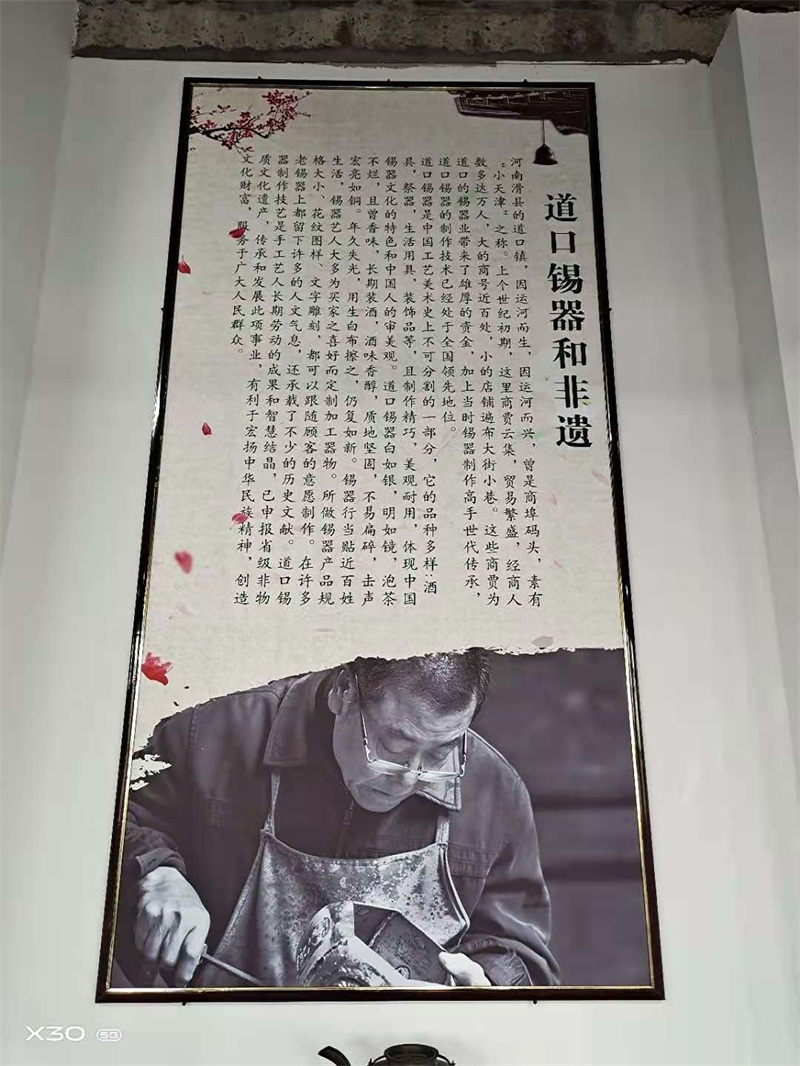 道口锡器和非遗
河南滑县的道口镇，因运河而生，因运河而兴，曾是商埠码头，素有
“小天津”之称。上个世纪初期，这里商贾云集，贸易繁盛，经商人
数多达万人，大的商号近百处，小的店铺遍布大街小巷。这些商贾为
道口的锡器业带来了雄厚的资金，加上当时锡器制作高手世代传承，
道口锡器的制作技术已经处于全国领先地位。
道口锡器是中国工艺美术史上不可分割的一部分，它的品种多样:酒
具，祭器，生活用具，装饰品等，且制作精巧，美观耐用，体现中国
锡器文化的特色和中国人的审美观。道口锡器白如银，明如镜，泡茶
不烂，且曾香味，长期装酒，酒味香醇，质地坚固，不易扁碎，击声
宏亮如铜。年久失光，用生白布擦之，仍复如新。锡器行当贴近百姓
生活，锡器艺人大多为买家之喜好而定制加工器物。所做锡器产品规
格大小、花纹图样、文字雕刻，都可以跟随顾客的意愿制作。在许多
老锡器上都留下许多的人文气息，还承载了不少的历史文献。道口锡
器制作技艺是手工艺人长期劳动的成果和智慧结晶，已申报省级非物
质文化遗产，传承和发展此项事业，有利于宏扬中华民族精神，创造
文化财富，服务于广大人民群众。
X30 5G